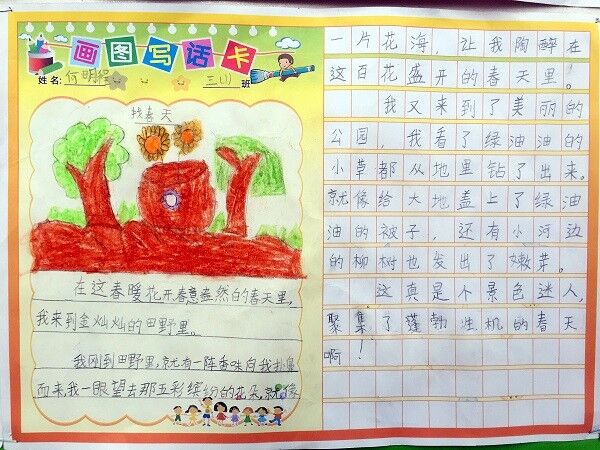 画图写话卡
姓名: 何明 三(1) 班
找春天
在这春暖花开春意盎然的春天里,
我来到金灿灿的田野里。
我刚到田野里,就有一阵香味向我扑鼻
而来,我一眼望去那五彩缤纷的花朵,就像
一片花海,让我陶醉在
这百花盛开的春天里!
我又来到了美丽的
公园,我看了绿油油的
小草都从地里钻了出来。
就像给大地盖上了绿油
油的被子,还有小河边
的柳树也发出了嫩芽。
这真是个景色迷人,
聚集了蓬勃性机的春天
啊!